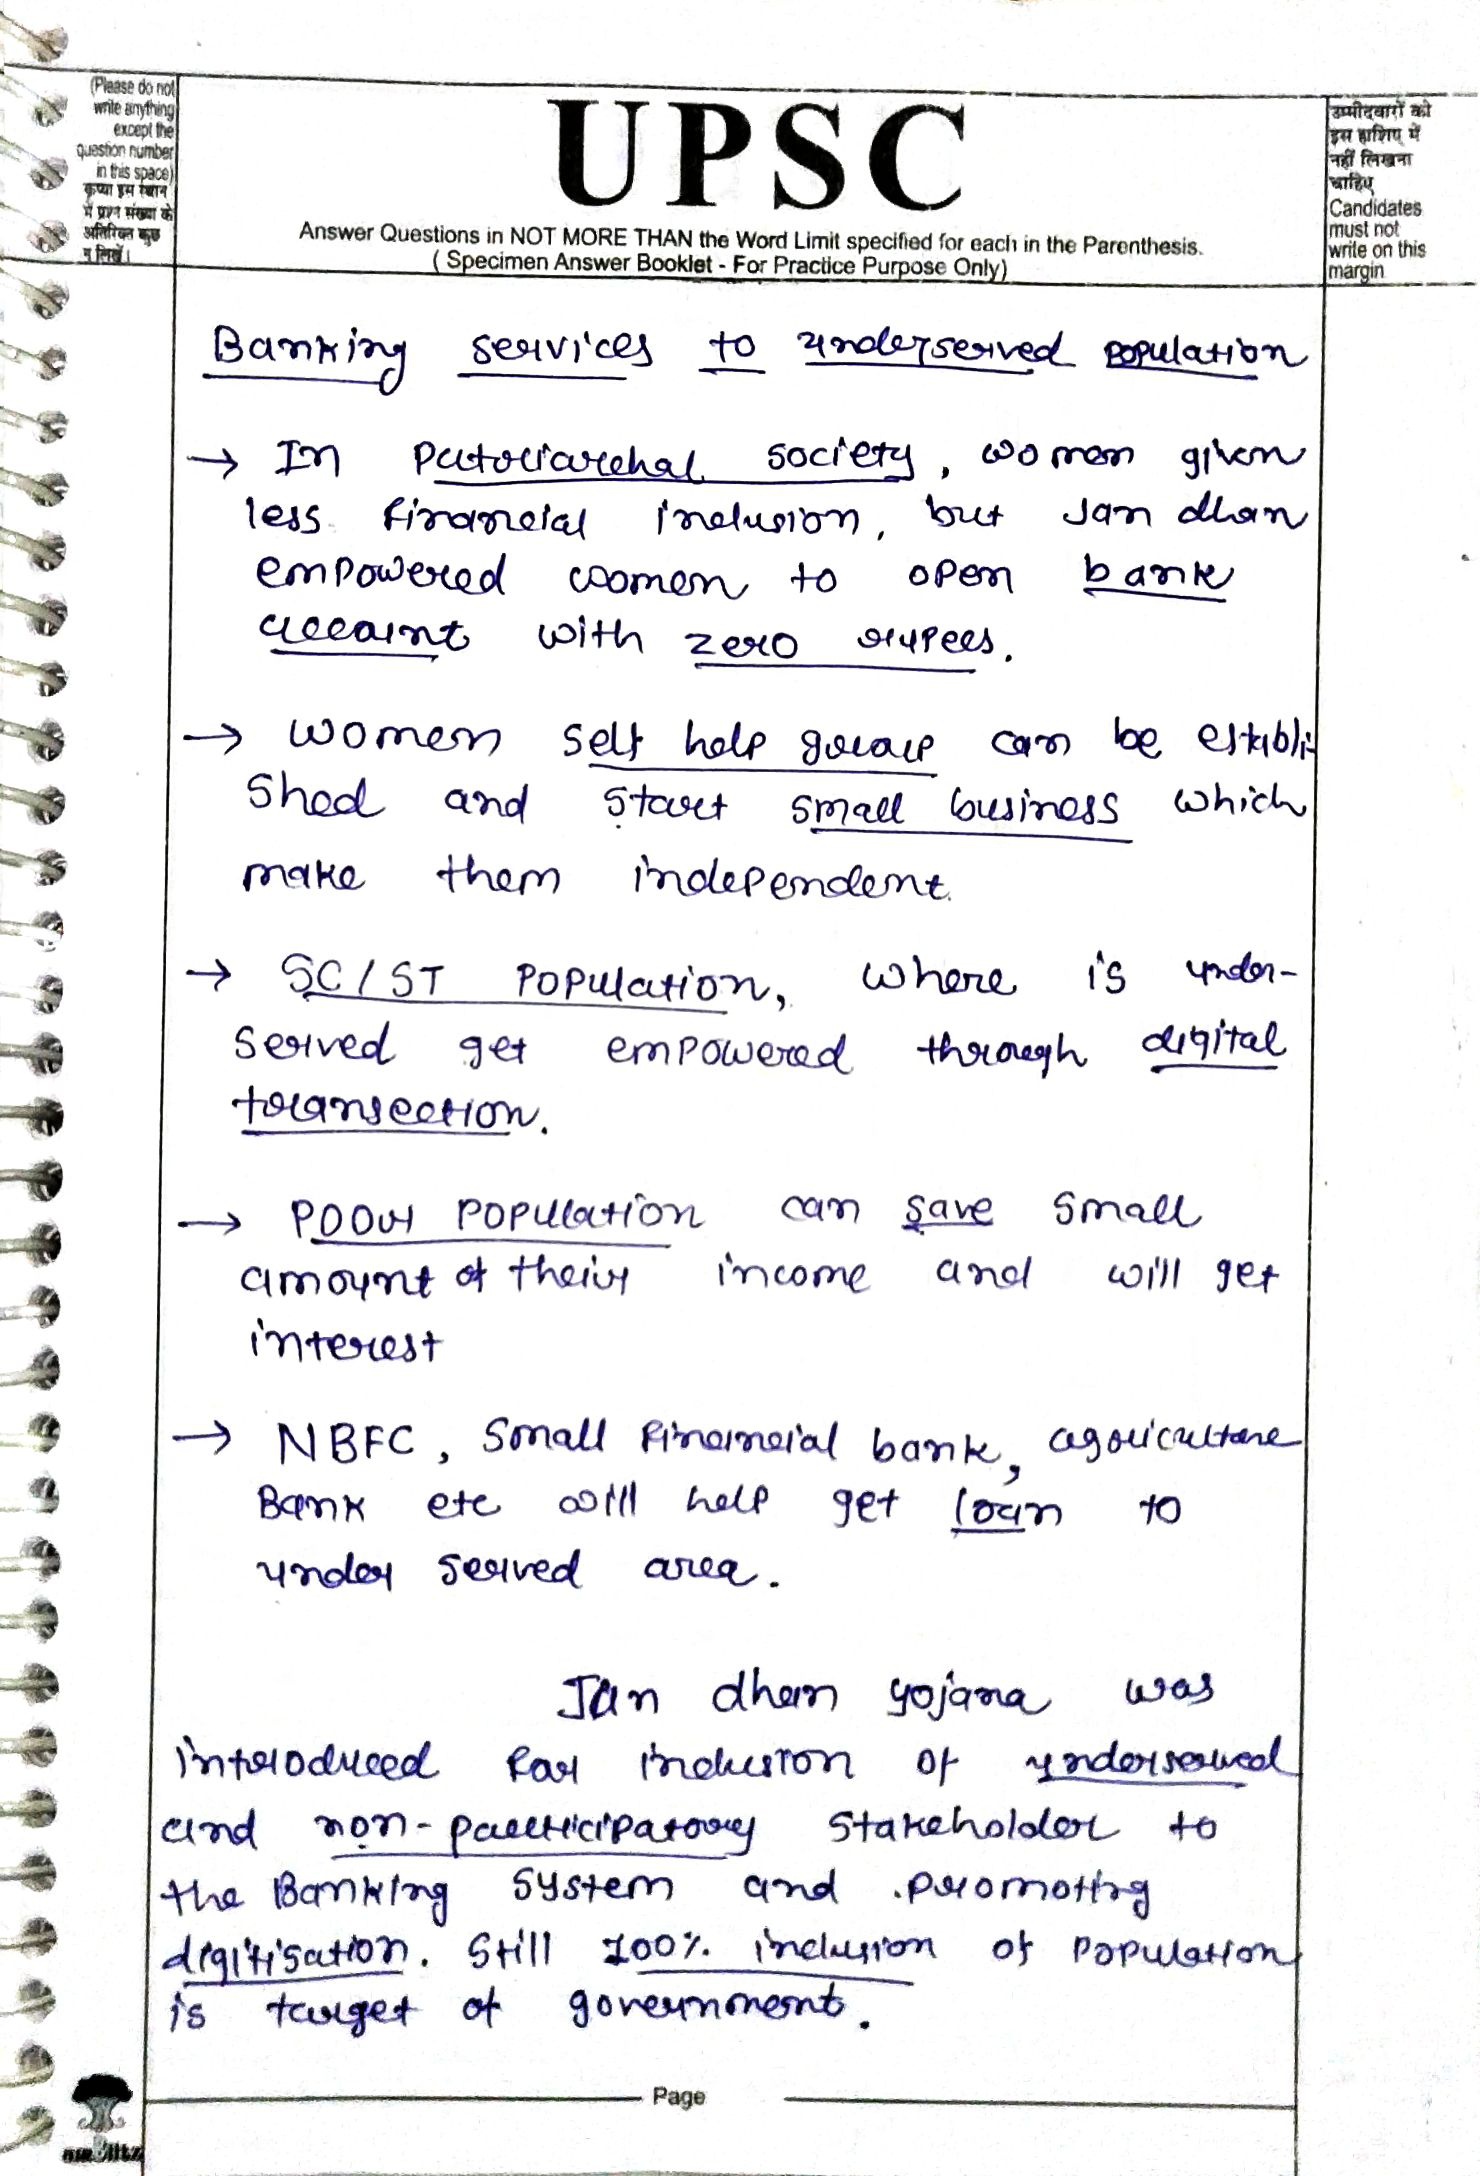 (Please do not
write anything
except the
question number
in this space)
कृप्या इस स्थान
में प्रश्न संख्या के
अतिरिक्त कुछ
न लिखें।
UPSC
Answer Questions in NOT MORE THAN the Word Limit specified for each in the Parenthesis.
( Specimen Answer Booklet - For Practice Purpose Only)
उम्मीदवारों को
इस हाशिए में
नहीं लिखना
चाहिए
Candidates
must not
write on this
margin
Banking services to underserved population
→ In patriarchal society, women given
less financial inclusion, but Jan dhan
empowered women to open bank
account with zero rupees.
→ women self help group can be establi-
shed and start small business which
make them independent.
→ SC/ST population, where is under-
served get empowered through digital
transection.
→ Poor population can save small
amount of their income and will get
interest
→ NBFC, small financial bank, agriculture
Bank etc will help get loan to
under served area.
Jan dhan yojana was
introduced for inclusion of underserved
and non-participatory stakeholder to
the Banking system and promoting
digitisation. Still 100% inclusion of population
is target of government.
Page